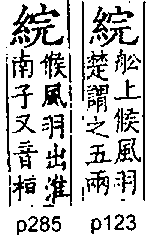 綄
舩上候風羽
楚謂之五兩
p123
綄
候風羽出淮
南子又音桓
p285